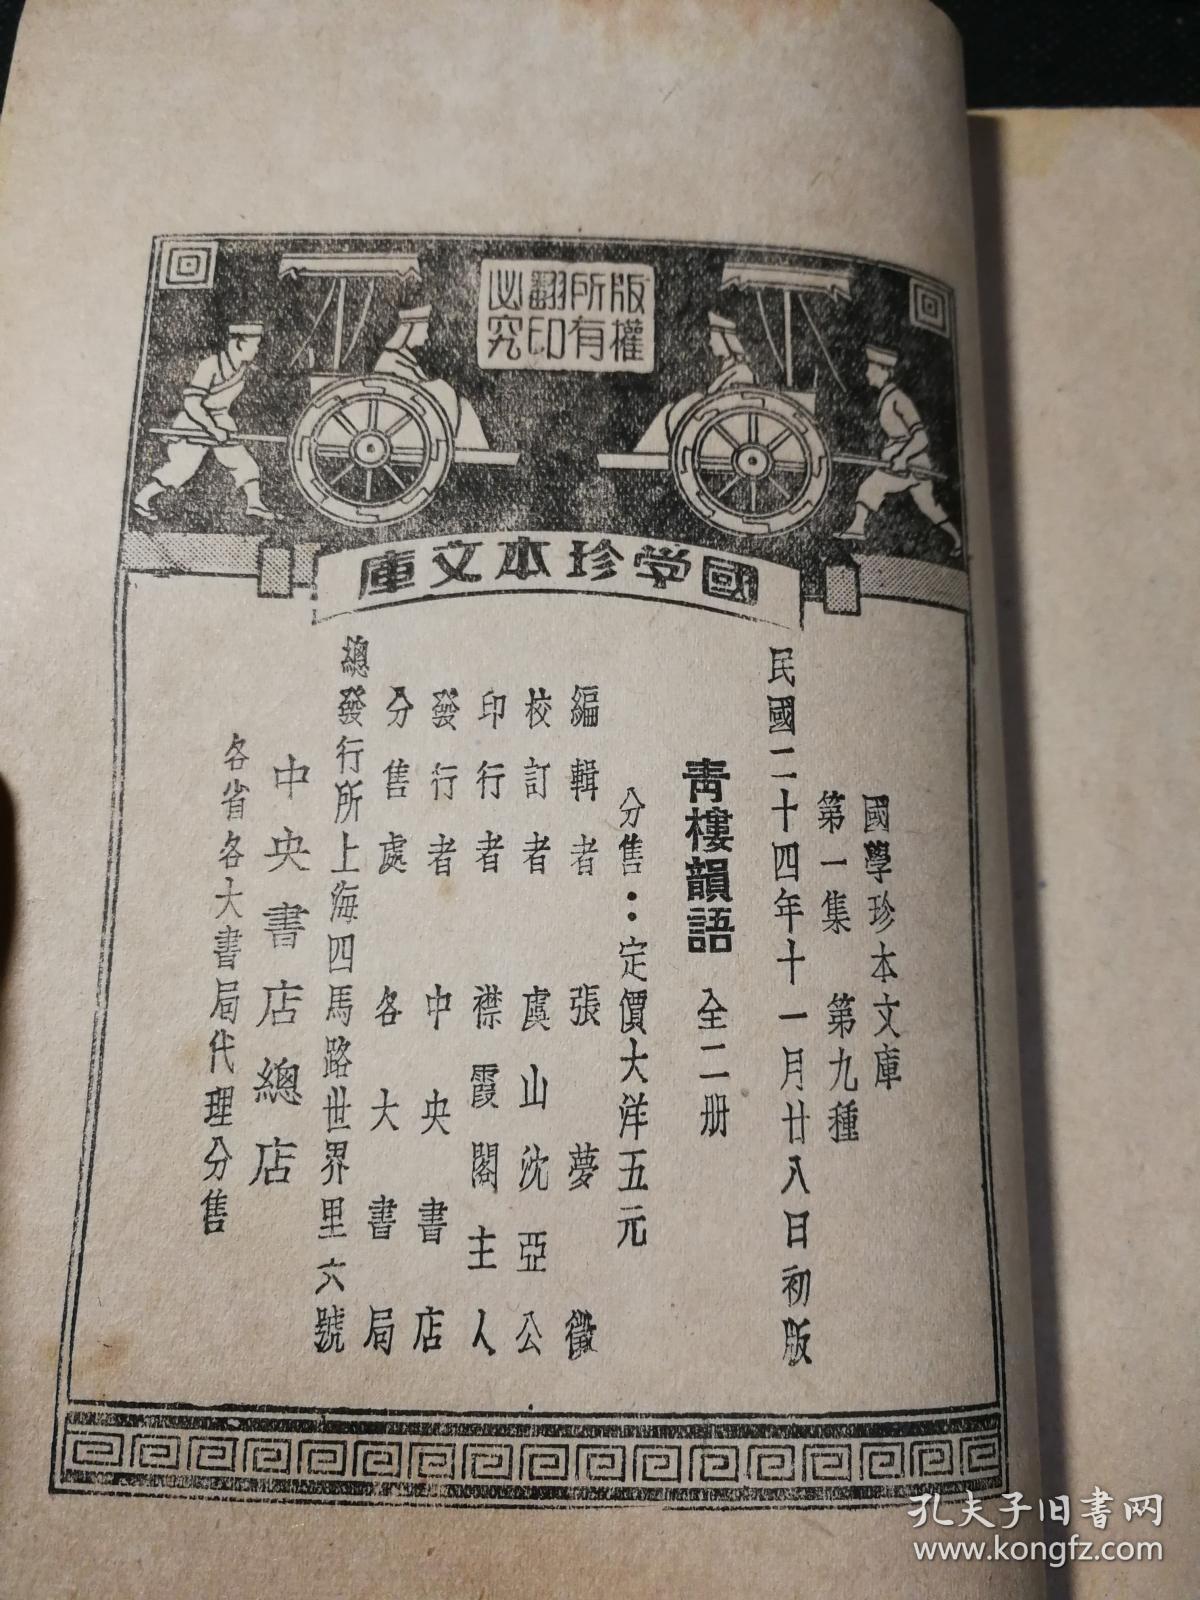 版權
所有
翻印
必究
國学珍本文庫
國學珍本文庫
第一集 第九種
民國二十四年十一月廿八日初版
青樓韻語 全二册
分售：定價大洋五元
編輯者 張夢徵
校訂者 虞山沈亞公
印行者 襟霞閣主人
發行者 中央書店
分售處 各大書局
總發行所上海四馬路世界里六號
中央書店總店
各省各大書局代理分售
孔夫子旧书网
www.kongfz.com